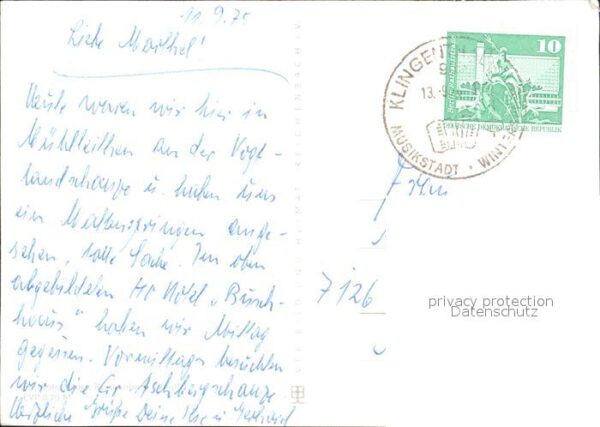 11.9.75
Liebe Marthel!
Heute waren wir hier in
Mühlleithen an der Vogt-
landschanze u. haben uns
ein Mattenspringen ange-
sehen, tolle Sache. Im oben
abgebildeten HO Hotel „Busch-
haus" haben wir Mittag
gegessen. Vormittags besuchten
wir die Gr Aschbergschanze
Herzliche Grüße Deine Ilse u Gerhard
KLINGENT
9
13.-9
MUSIKSTADT • WINT
10
DEUTSCHE DEMOKRATISCHE REPUBLIK
7126
privacy protection
Datenschutz